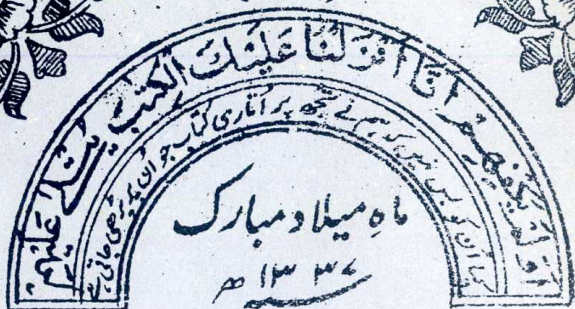 اَوَلَمْ يَكْفِهِمْ اَنَّا اَنْزَلْنَا عَلَيْكَ الْكِتٰبَ يُتْلٰى عَلَيْهِمْ
کیا ان کو بس نہیں کہ ہم نے تجھ پر اتاری کتاب جو ان پر پڑھی جاتی ہے
ماہِ میلاد مبارک
۱۳۳۷ھ